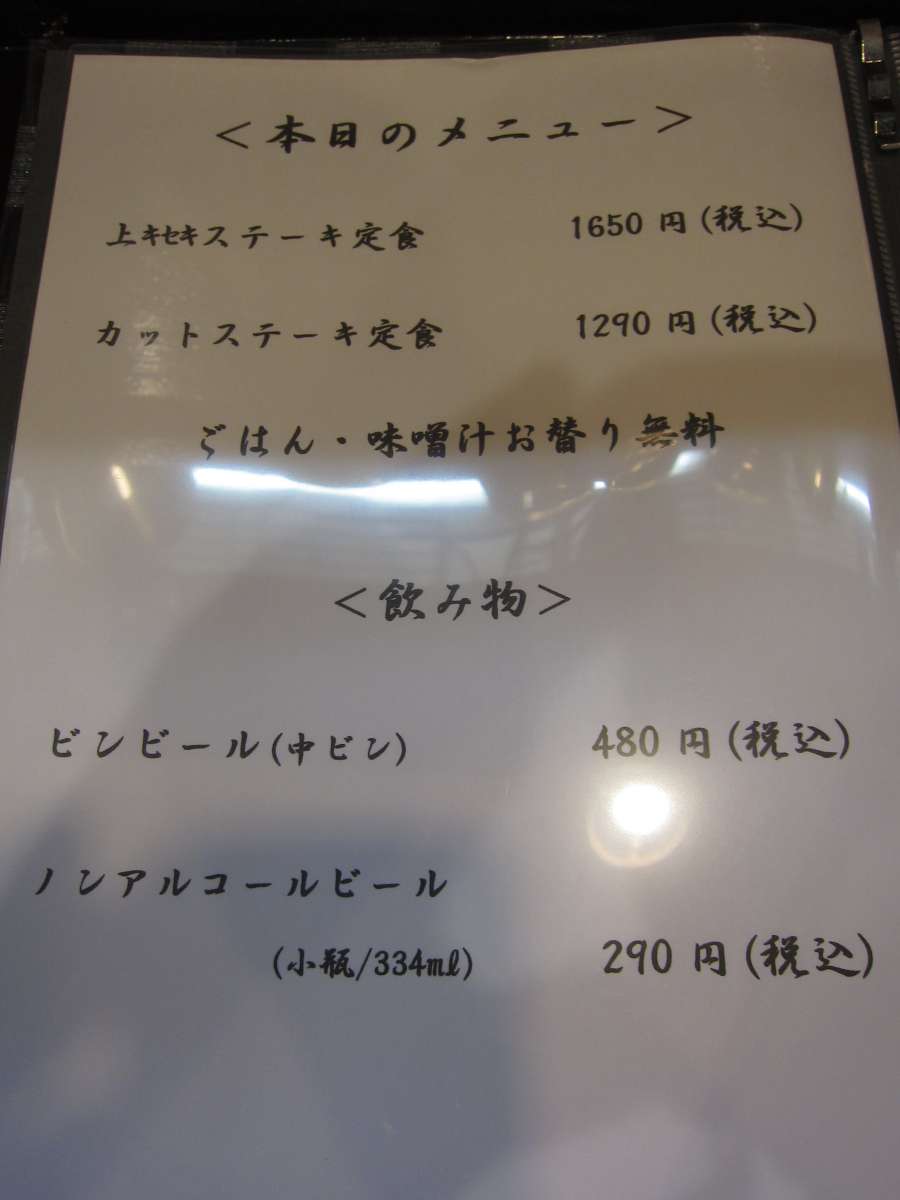 ＜本日のメニュー＞
上ｷｾｷステーキ定食 1650 円(税込)
カットステーキ定食 1290 円(税込)
ごはん・味噌汁お替り無料
＜飲み物＞
ビンビール(中ビン) 480 円(税込)
ノンアルコールビール
(小瓶/334㎖) 290 円(税込)